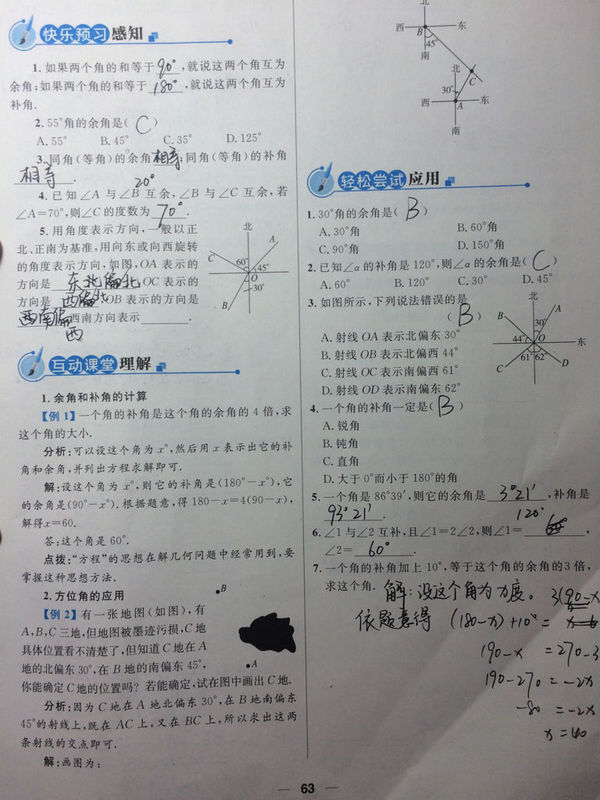 快乐预习 感知
1.如果两个角的和等于 90° ,就说这两个角互为
余角;如果两个角的和等于 180° ,就说这两个角互为
补角.
2.55°角的余角是( C )
A.55° B.45° C.35° D.125°
3.同角(等角)的余角 相等 ;同角(等角)的补角
相等 .
20°
4.已知∠A与∠B互余,∠B与∠C互余,若
∠A=70°,则∠C的度数为 70° .
5.用角度表示方向,一般以正
北、正南为基准,用向东或向西旋转
的角度表示方向,如图,OA表示的
方向是 东北偏北 ,OC表示的
方向是 西偏北 ,OB表示的方向是
西南偏 西南方向表示 .
西
北
C
A
60°
45°
O
30°
B
互动课堂 理解
1.余角和补角的计算
【例1】一个角的补角是这个角的余角的4倍,求
这个角的大小.
分析:可以设这个角为x°,然后用x表示出它的补
角和余角,并列出方程求解即可.
解:设这个角为x°,则它的补角是(180°-x°),它
的余角是(90°-x°).根据题意,得180-x=4(90-x),
解得x=60.
答:这个角是60°.
点拨:“方程”的思想在解几何问题中经常用到,要
掌握这种思想方法.
2.方位角的应用
【例2】有一张地图(如图),有
A,B,C三地,但地图被墨迹污损,C地
具体位置看不清楚了,但知道C地在A
地的北偏东30°,在B地的南偏东45°,
你能确定C地的位置吗?若能确定,试在图中画出C地.
B
A
分析:因为C地在A地北偏东30°,在B地南偏东
45°的射线上,既在AC上,又在BC上,所以求出这两
条射线的交点即可.
解:画图为:
北
西 B 东
45°
南
北
C
30°
西 A 东
南
轻松尝试 应用
1.30°角的余角是( B )
A.30°角 B.60°角
C.90°角 D.150°角
2.已知∠α的补角是120°,则∠α的余角是( C )
A.60° B.120° C.30° D.45°
3.如图所示,下列说法错误的是
( B )
A.射线OA表示北偏东30°
B.射线OB表示北偏西44°
C.射线OC表示南偏西61°
D.射线OD表示南偏东62°
北
A
B
30°
44° O
61° 62°
C
D
4.一个角的补角一定是( B )
A.锐角
B.钝角
C.直角
D.大于0°而小于180°的角
5.一个角是86°39′,则它的余角是 3°21′ ,补角是
93°21′ .
120°
6.∠1与∠2互补,且∠1=2∠2,则∠1= ,
∠2= 60° .
7.一个角的补角加上10°,等于这个角的余角的3倍,
求这个角.
解:设这个角为x度。 3(90-x
依题意得 (180-x)+10° =
190-x = 270-3
190-270 = -2x
-80 = -2x
x=40
63